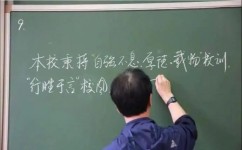 9.
本校秉持"自强不息、厚德载物"校训,
"行胜于言"校风